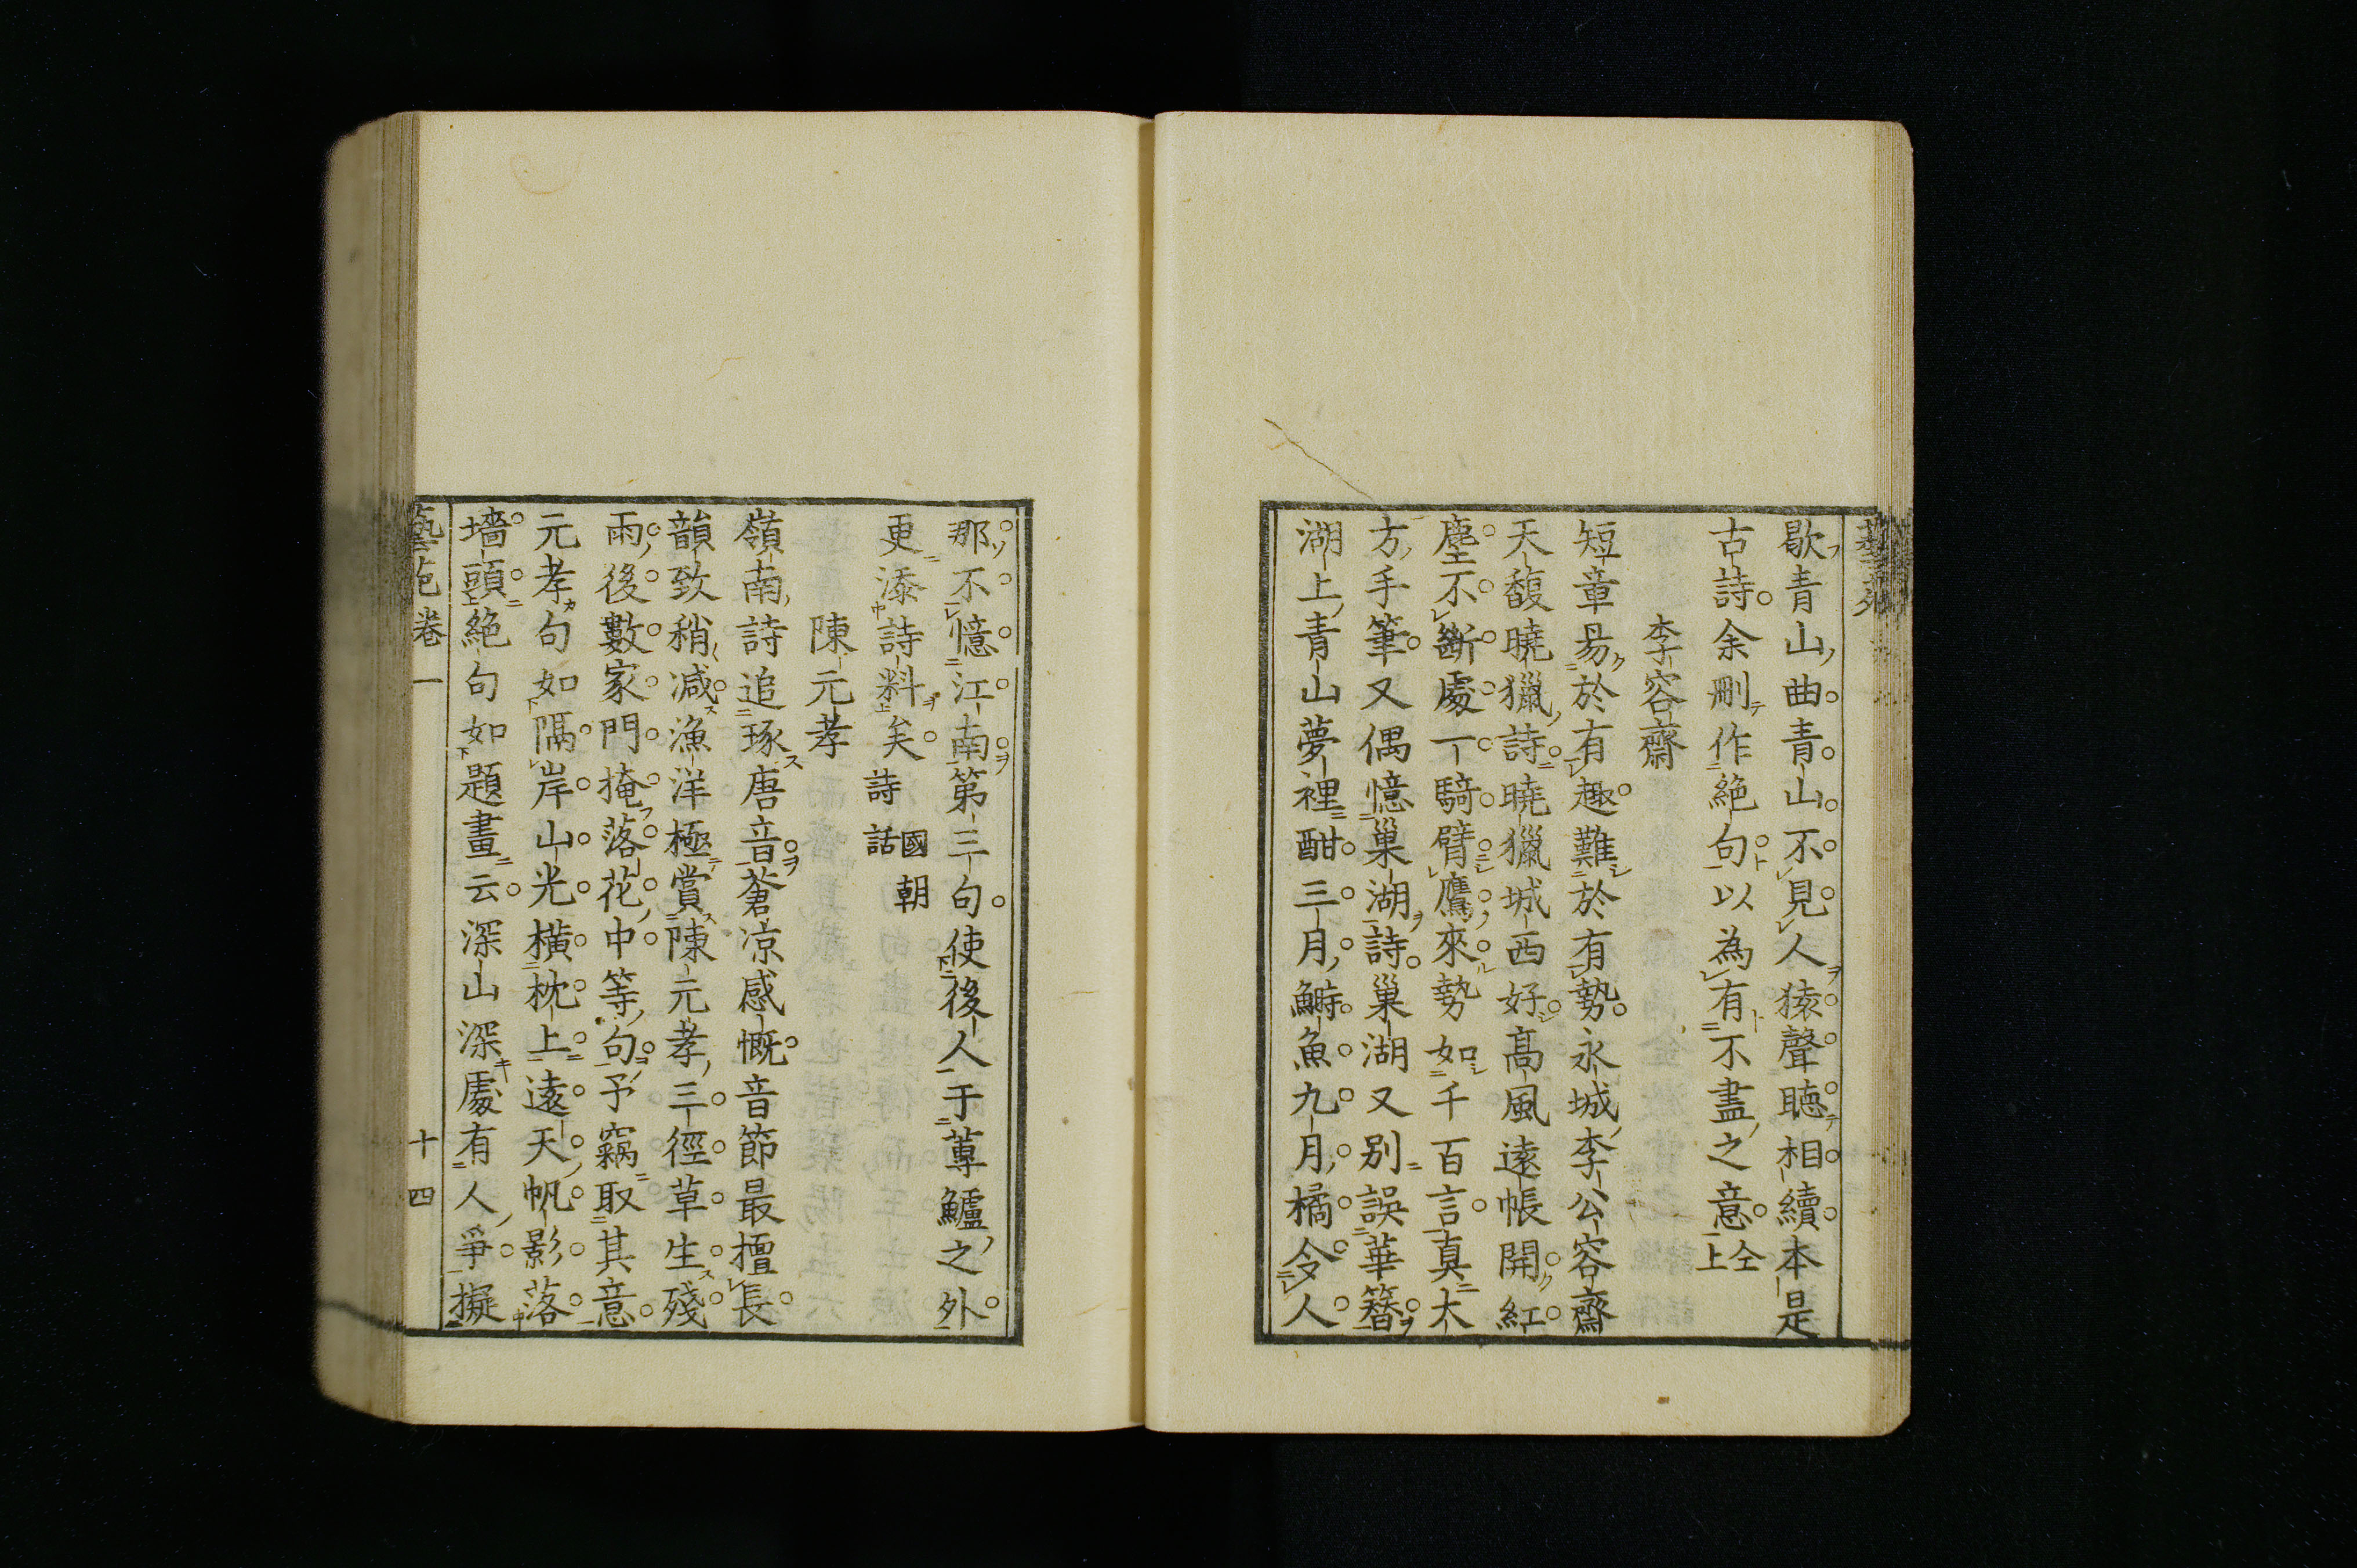 歇青山曲青山不見人猿聲聴相續本是
古詩余刪作絶句以為有不盡之意仝上
李容齋
短章易於有趣難於有勢永城李公容齋
天馥曉獵詩曉獵城西好高風遠帳開紅
塵不斷處一騎臂鷹來勢如千百言真大
方手筆又偶憶巢湖詩巢湖又別誤華簪
湖上青山夢裡酣三月鰣魚九月橘令人
那不憶江南第三句使後人于蓴鱸之外
更添詩料矣國朝詩話
陳元孝
嶺南詩追琢唐音蒼涼感慨音節最擅長
韻致稍減漁洋極賞陳元孝三徑草生殘
雨後數家門掩落花中等句予竊取其意
元孝句如隔岸山光橫枕上遠天帆影落
墻頭絶句如題畫云深山深處有人爭擬
藝苑卷一
十四